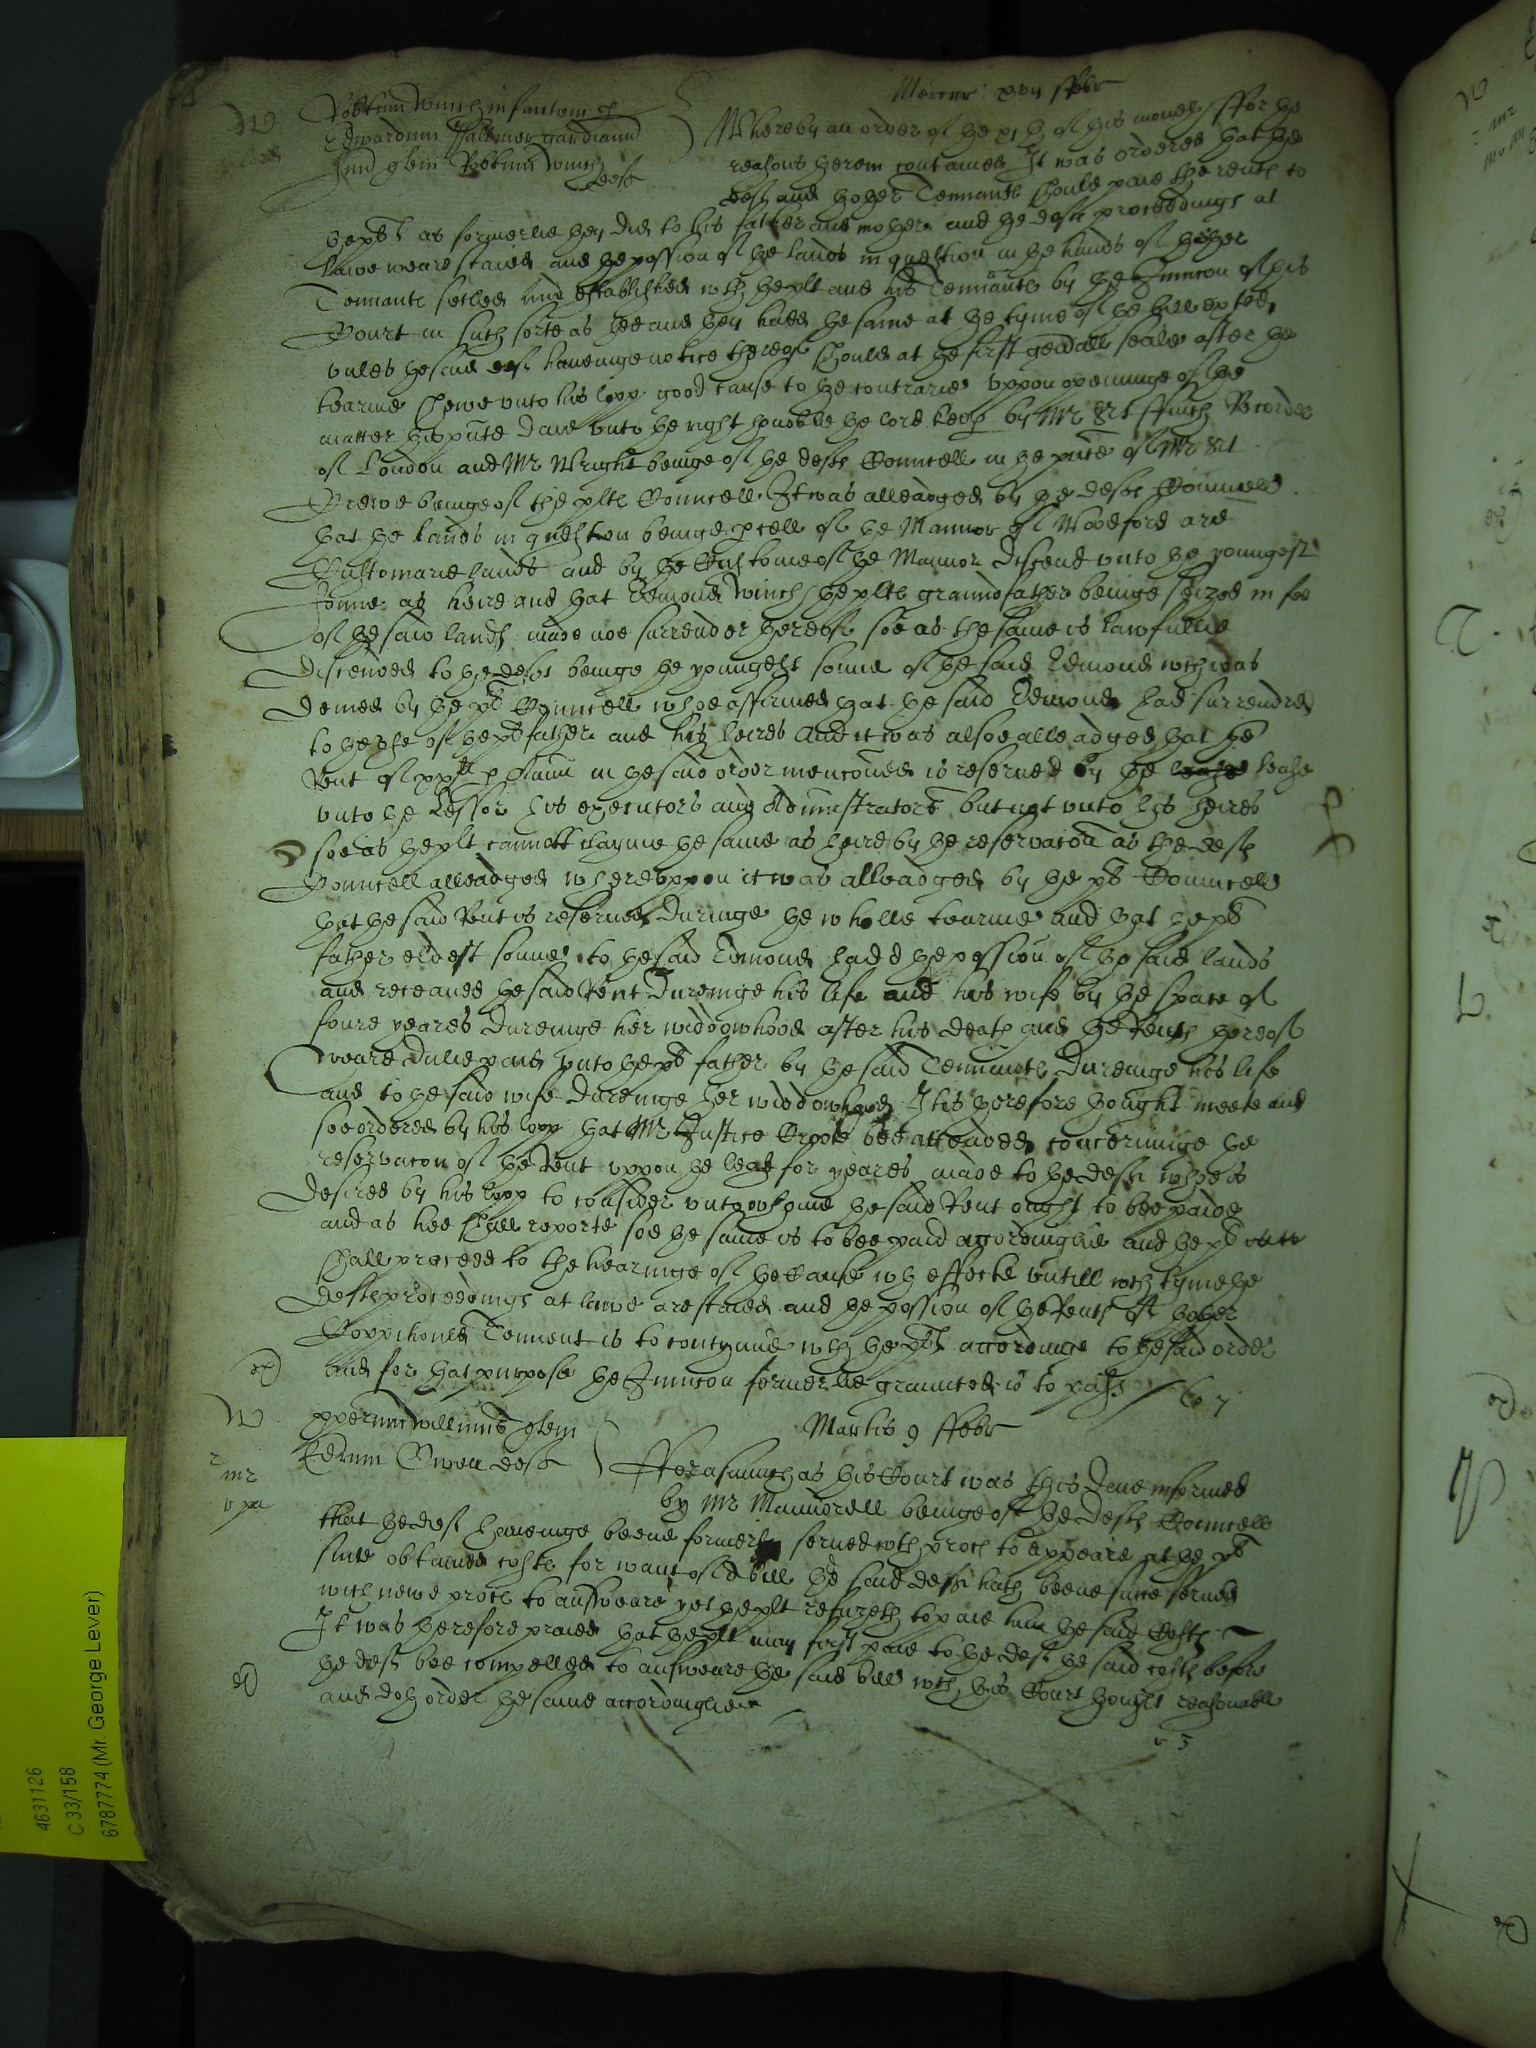 Mercur: xvij ffebr
W Robtum Winch infantem p
Edwardum Pallmer gardianu
suu quer Robtum Winch
deft
Whereby an order of the xj th of this moneth ffor the
reasons therein contained It was ordered that the
deft and thother Tennants should paie the rents to
the plt as formerlie they did to his father and mother and the defts proceedings at
lawe weare staied and the possion of the lands in question in the hands of thother
Tennants setled and established wth the plt and his Tennants by the Iniunccon of this
Court in such sorte as hee and they hadd the same at the tyme of the bill exhited,
vnles the said deft haveinge notice thereof should at the first gen'all seale after the
tearme shewe vnto his lopp good cause to the contrarie Vppon openinge of the
matter this p'nte daie vnto the right honoble the lord keep by Mr Srt ffinch Recorder
of London and Mr Wright beinge of the defts Councell in the p'nce of Mr Srt
Crewe beinge of the plts Councell It was alleadged by the defts Councell
that the lands in question beinge p'cell of the Mannor of Woodford are
Customarie lands and by the Custome of the Mannor discend vnto the youngest
sonne as heire and that Edmond Winch the plts graundfather beinge seized in fee
of the said lands made noe surrender thereof soe as the same is lawfullie
discended to the deft beinge the youngest sonne of the said Edmond wch was
denied by the plts Councell whoe affirmed that the said Edmond had surrendred
to the vse of the plts father and his heires And it was alsoe alleadged that the
Rent of xxli p Annu in the said order menconed is reserved by the lease
vnto the Lessor his executors and Administrators but not vnto his heires
soe as the plt cannott clayme the same as heire by the reservacon as the defts
Councell alleadged wherevppon it was alleadged by the plts Councell
that the said Rent is reserved duringe the wholle tearme and that the plts
father eldest sonne to the said Edmond hadd the possion of the said lands
and receaved the said Rent dureinge his life and his wife by the space of
foure yeares dureinge her widdowhood after his death and the Rents thereof
weare dulie paid vnto the plts father by the said Tennants dureinge his life
and to the said wife dureinge her widdowhood It is therefore thought meete and
soe ordered by his lopp that Mr Justice Crooke bee attended concerninge the
reservacon of the Rent vppon the lease for yeares made to the deft whoe is
desired by his lopp to consider vnto whome the said Rent ought to bee paide
and as hee shall reporte soe the same is to bee paid accordinglie and the plt
shall proceed to the hearinge of the Cause wth effecte vntill wch tyme the
defts proceedings at lawe are staied and the possion of the Rents of thother
Coppihould Tennents is to contynue wth the plt accordinge to the said order
and for that purpose the Iniunccon formerlie graunted is to passe
W Willims quer
Owen deft
Martis 9 ffebr
Mr
fforasmuch as this Court was this daie informed
by Mr beinge of the defts Councell
that the deft haveinge beene formerly served wth proces to appeare at the plts
suite obtained costs for want of a bill the said deft hath beene since served
with newe proces to answeare yet the plt refuseth to paie him the said Costs
It was therefore praied that the plt may first paie to the deft the said costs before
the deft bee compelled to answeare the said bill wch this Court thought reasonable
and doth order the same accordinglie
4631126
C 33/158
6787774 (Mr. George Lever)